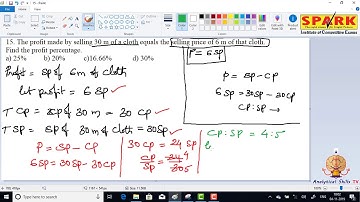 SPARK
Institute of Competitive Exams
15. The profit made by selling 30 m of a cloth equals the selling price of 6 m of that cloth.
Find the profit percentage.
a) 25% b) 20% c)16.66% d) 30%
P = 6 SP
Profit = SP of 6m of cloth
let profit = 6 SP
T CP = CP of 30 m = 30 CP
T SP = SP of 30m of cloth = 30SP
P = SP - CP
6SP = 30SP - 30CP
30 CP = 24 SP
CP/SP = 24 4/30 5
P = SP - CP
6SP = 30SP - 30CP
CP : SP →
CP : SP = 4 : 5
Analytical Skills TV